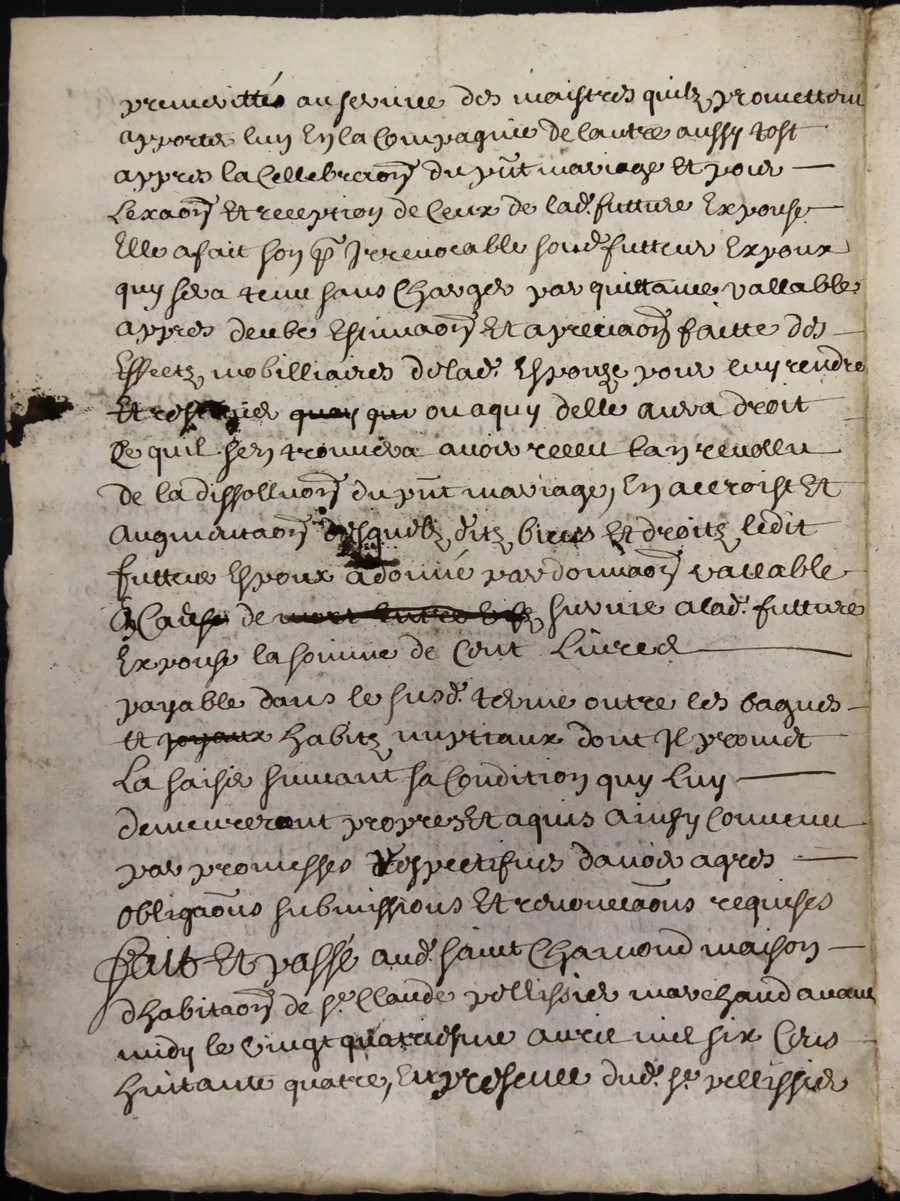 au service des maistres quilz promettent
apporter luy En la Compagnie de lautre aussy tost
appres la Cellebraon du pnt mariage Et pour
Lexaon Et reception de Ceux de lad. future Expouse
Elle a fait son pr Irrevocable sond. futteur Expoux
quy sera tenu sans Charger par quittance vallable
appres deube Estimaon Et apreciaon faitte des
Effectz mobilliaires de lad. Espouze pour luy rendre
Et ou a quy delle aura droit
Ce quil sen trouvera avoir receu lan revollu
de la dissolluon du pnt mariage, En accroist Et
Augmentaon desquelz ditz biens Et droitz ledit
futteur Espoux a donné par donnaon vallable
A Cause de survie a lad. futture
Expouse la somme de Cent Livres
payable dans le susd. terme outre les bagues
et joyaux habitz nuptiaux dont Jl promet
La saisir suivant sa Condition quy Luy
demeureront propres Et aquis Ainsy Convenu
par promesses Respectifves davoir agres
Obligaons submissions Et renonciaons requises
Fait Et passé aud. saint Chamond maison
dhabitaon de sr. Claude pellissier marchand avant
midy le vingt quatriesme avril mil six Cens
huitante quatre, En presence dud. sr. pellissier